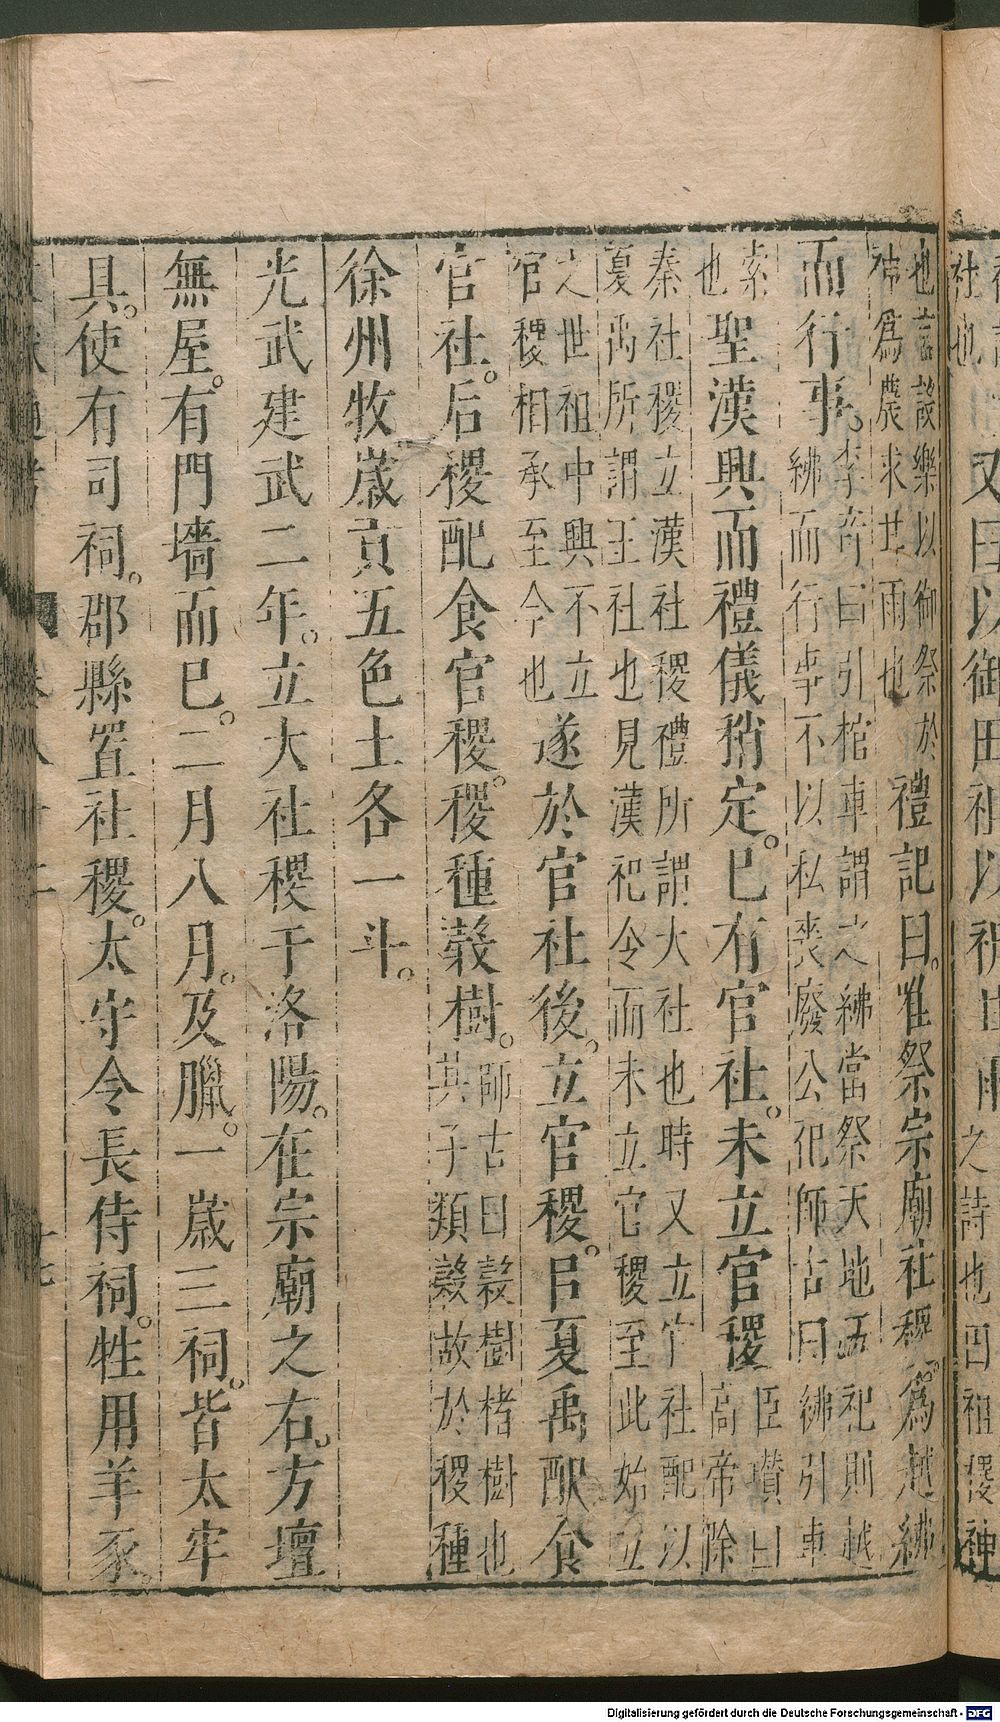 社也
又曰以御田祖以祈甘雨之詩也田祖稷神
也言設樂以御祭於
神為農求甘雨也
禮記曰。唯祭宗廟社稷。為越紼
而行事。
李奇曰引棺車謂之紼當祭天地五祀則越
紼而行事不以私喪廢公祀師古曰紼引車
索
也
聖漢興而禮儀稍定。已有官社。未立官稷
臣瓚曰
高帝除
秦社稷立漢社稷禮所謂大社也時又立官社配以
夏禹所謂王社也見漢祀令而未立官稷至此始立
之世祖中興不立
官稷相承至今也
遂於官社後。立官稷。㠯夏禹配食
官社。后稷配食官稷。稷種穀樹。
師古曰穀樹楮樹也
其子類穀故於稷種
徐州牧歲貢五色土各一斗。
光武建武二年。立大社稷于洛陽。在宗廟之右。方壇
無屋。有門墻而已。二月八月。及臘。一歲三祠。皆太牢
具。使有司祠。郡縣置社稷。太守令長侍祠。牲用羊豕。
Digitalisierung gefördert durch die Deutsche Forschungsgemeinschaft - DFG